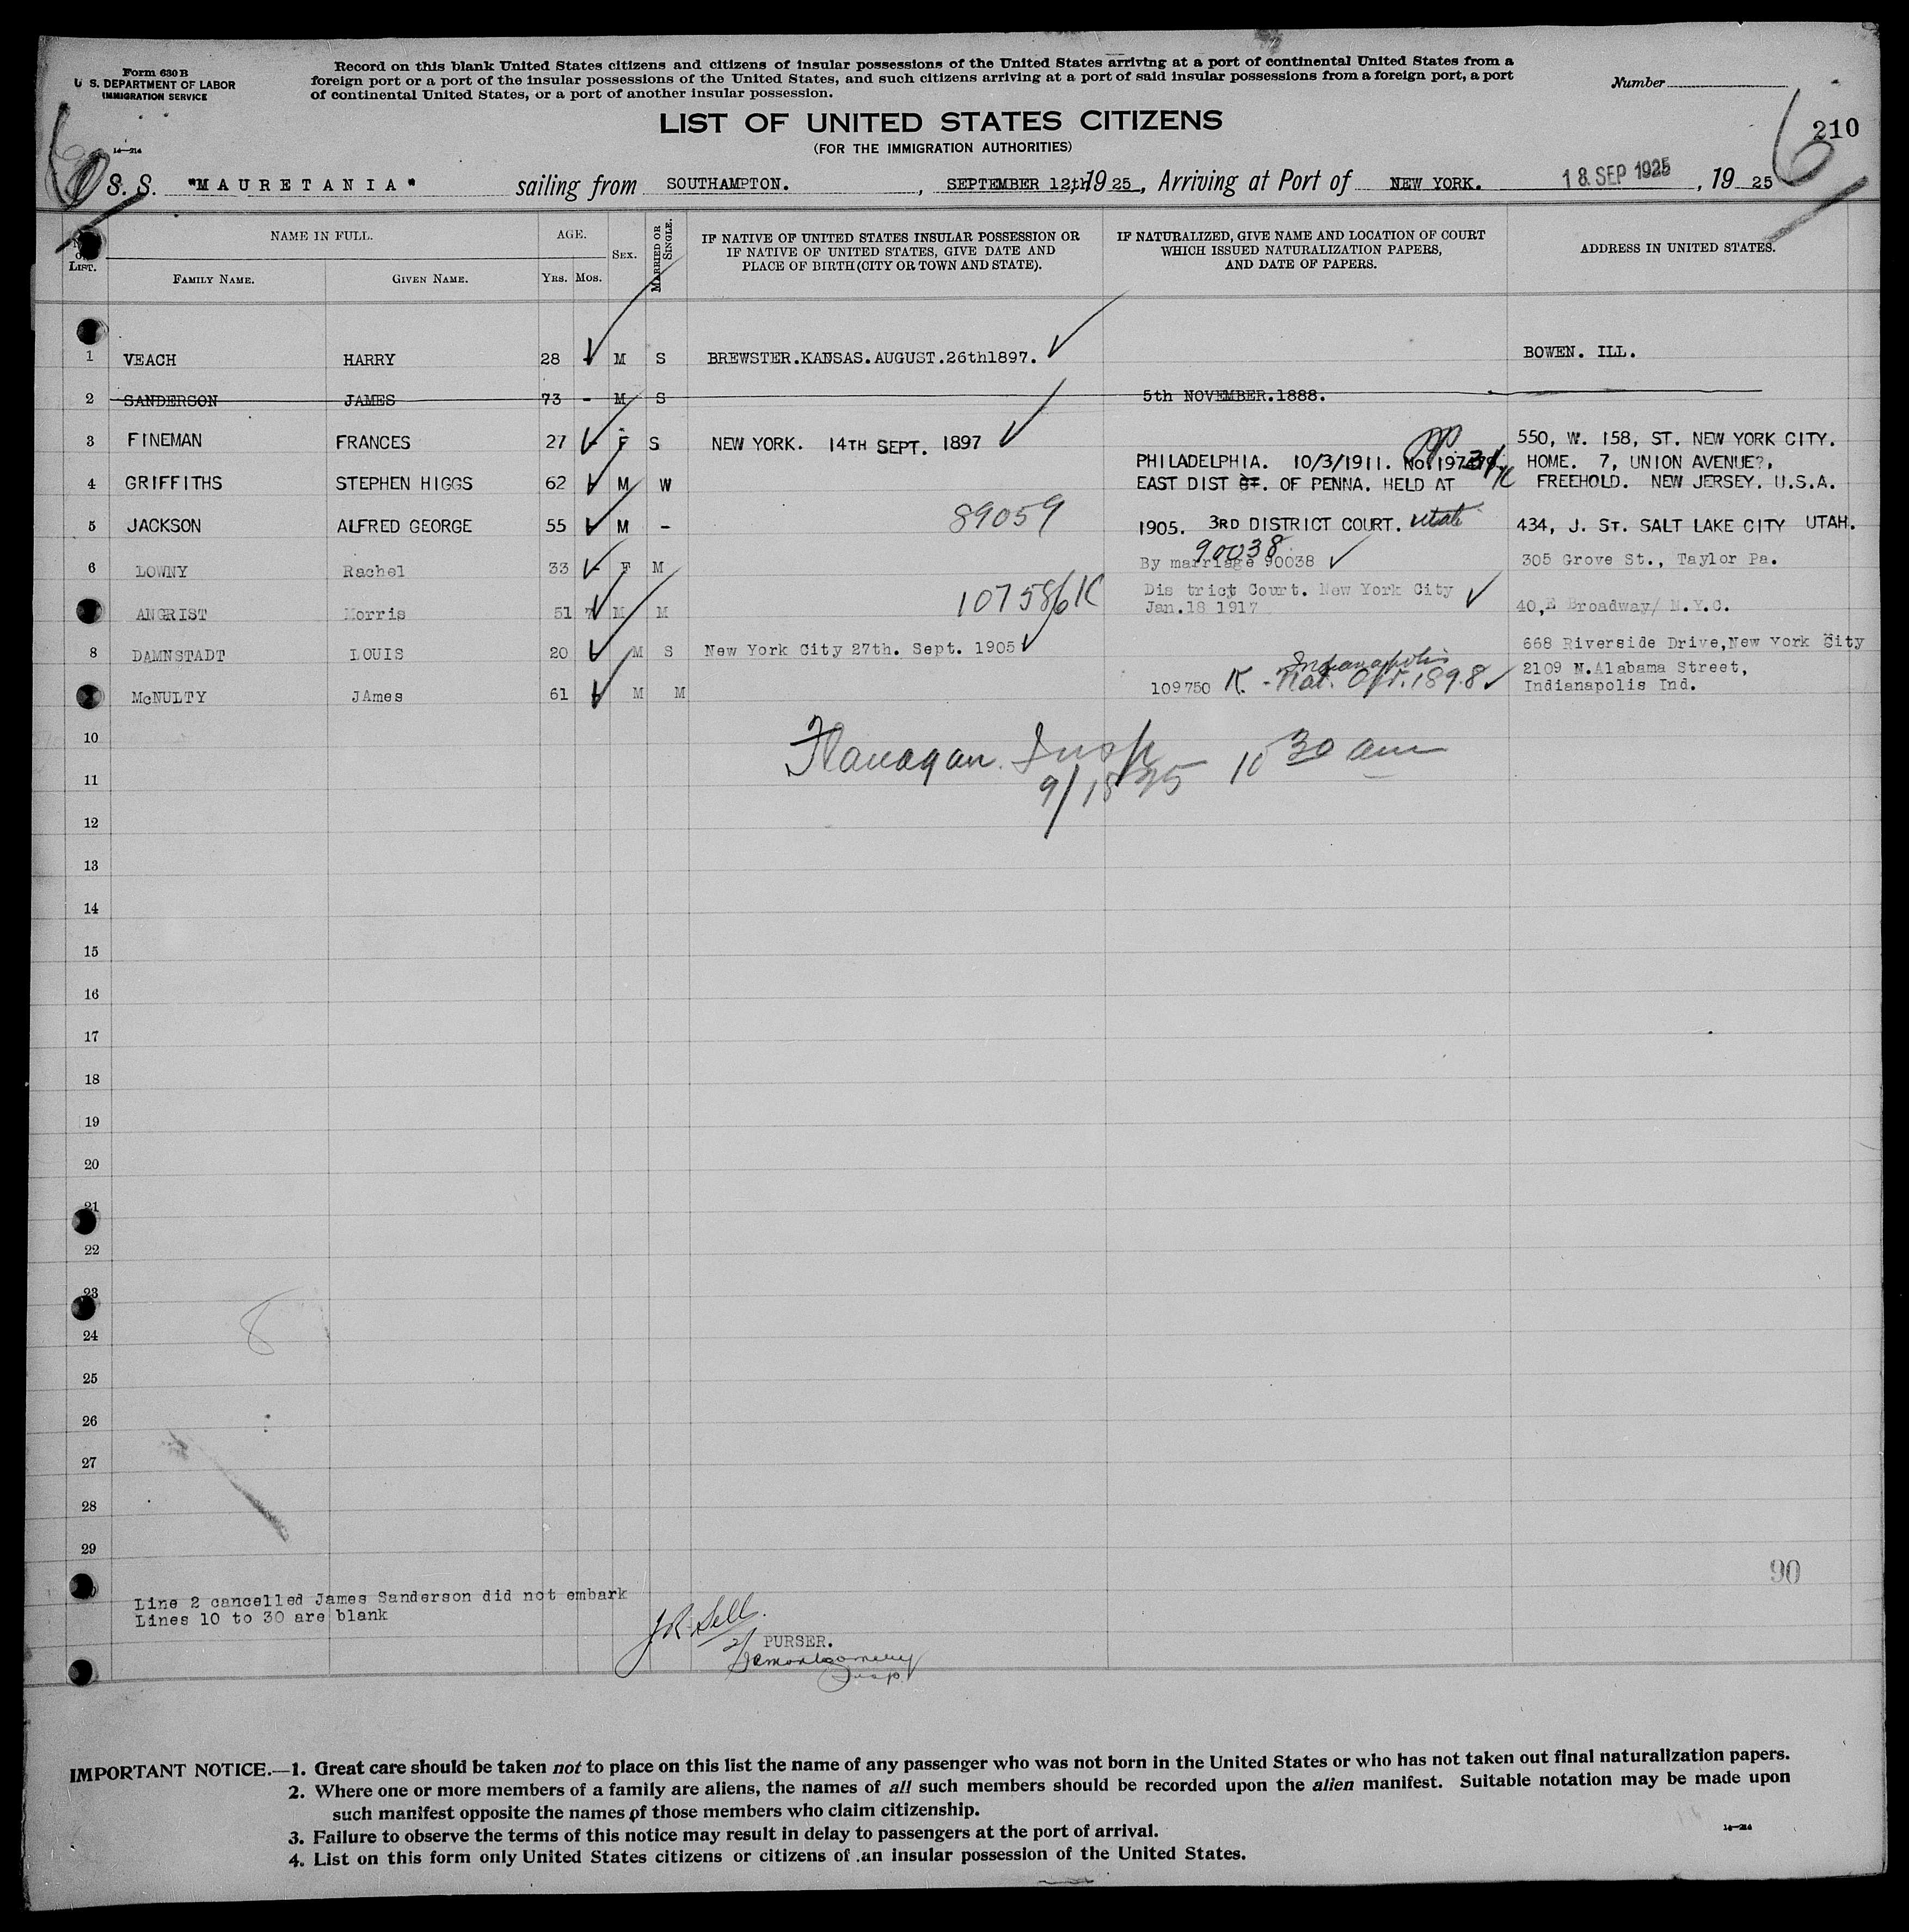 Form 630 B
U. S. DEPARTMENT OF LABOR
IMMIGRATION SERVICE
14—214
Record on this blank United States citizens and citizens of insular possessions of the United States arriving at a port of continental United States from a
foreign port or a port of the insular possessions of the United States, and such citizens arriving at a port of said insular possessions from a foreign port, a port
of continental United States, or a port of another insular possession.
Number
LIST OF UNITED STATES CITIZENS
(FOR THE IMMIGRATION AUTHORITIES)
6
210
S. S. "MAURETANIA" sailing from SOUTHAMPTON. , SEPTEMBER 12th 1925, Arriving at Port of NEW YORK. 18 SEP 1925 , 19 25
LIST. NAME IN FULL. AGE. SEX. MARRIED OR SINGLE. IF NATIVE OF UNITED STATES INSULAR POSSESSION OR IF NATIVE OF UNITED STATES, GIVE DATE AND PLACE OF BIRTH (CITY OR TOWN AND STATE). IF NATURALIZED, GIVE NAME AND LOCATION OF COURT WHICH ISSUED NATURALIZATION PAPERS, AND DATE OF PAPERS. ADDRESS IN UNITED STATES.
FAMILY NAME. GIVEN NAME. YRS. MOS.
1 VEACH HARRY 28 - M S BREWSTER.KANSAS.AUGUST.26th1897. BOWEN. ILL.
2 SANDERSON JAMES 73 - M S 5th NOVEMBER.1888.
3 FINEMAN FRANCES 27 - F S NEW YORK. 14TH SEPT. 1897 550, W. 158, ST. NEW YORK CITY.
PHILADELPHIA. 10/3/1911. HOME. 7, UNION AVENUE?,
4 GRIFFITHS STEPHEN HIGGS 62 M W EAST DIST OF PENNA. HELD AT FREEHOLD. NEW JERSEY. U.S.A.
5 JACKSON ALFRED GEORGE 55 M - 89059 1905. 3RD DISTRICT COURT. Utah 434, J. ST. SALT LAKE CITY UTAH.
90038
6 LOWNY Rachel 33 - F M By marriage 90038 305 Grove St., Taylor Pa.
107586 K Dis trict Court. New York City
ANGRIST Morris 51 M M Jan.18 1917 40,E Broadway/ N.Y.C.
8 DAMNSTADT LOUIS 20 M S New York City 27th. Sept. 1905 668 Riverside Drive,New York City
Indianapolis 2109 N.Alabama Street,
McNULTY JAmes 61 M M 109750 K. - Nat. 1898 Indianapolis Ind.
10
Flanagan Insp 10 30 am
11
9/18 25
12
13
14
15
16
17
18
19
20
21
22
23
8
24
25
26
27
28
29
90
Line 2 cancelled James Sanderson did not embark
Lines 10 to 30 are blank
PURSER.
Insp
IMPORTANT NOTICE.—1. Great care should be taken not to place on this list the name of any passenger who was not born in the United States or who has not taken out final naturalization papers.
2. Where one or more members of a family are aliens, the names of all such members should be recorded upon the alien manifest. Suitable notation may be made upon
such manifest opposite the names of those members who claim citizenship.
3. Failure to observe the terms of this notice may result in delay to passengers at the port of arrival.
4. List on this form only United States citizens or citizens of an insular possession of the United States.
14—214